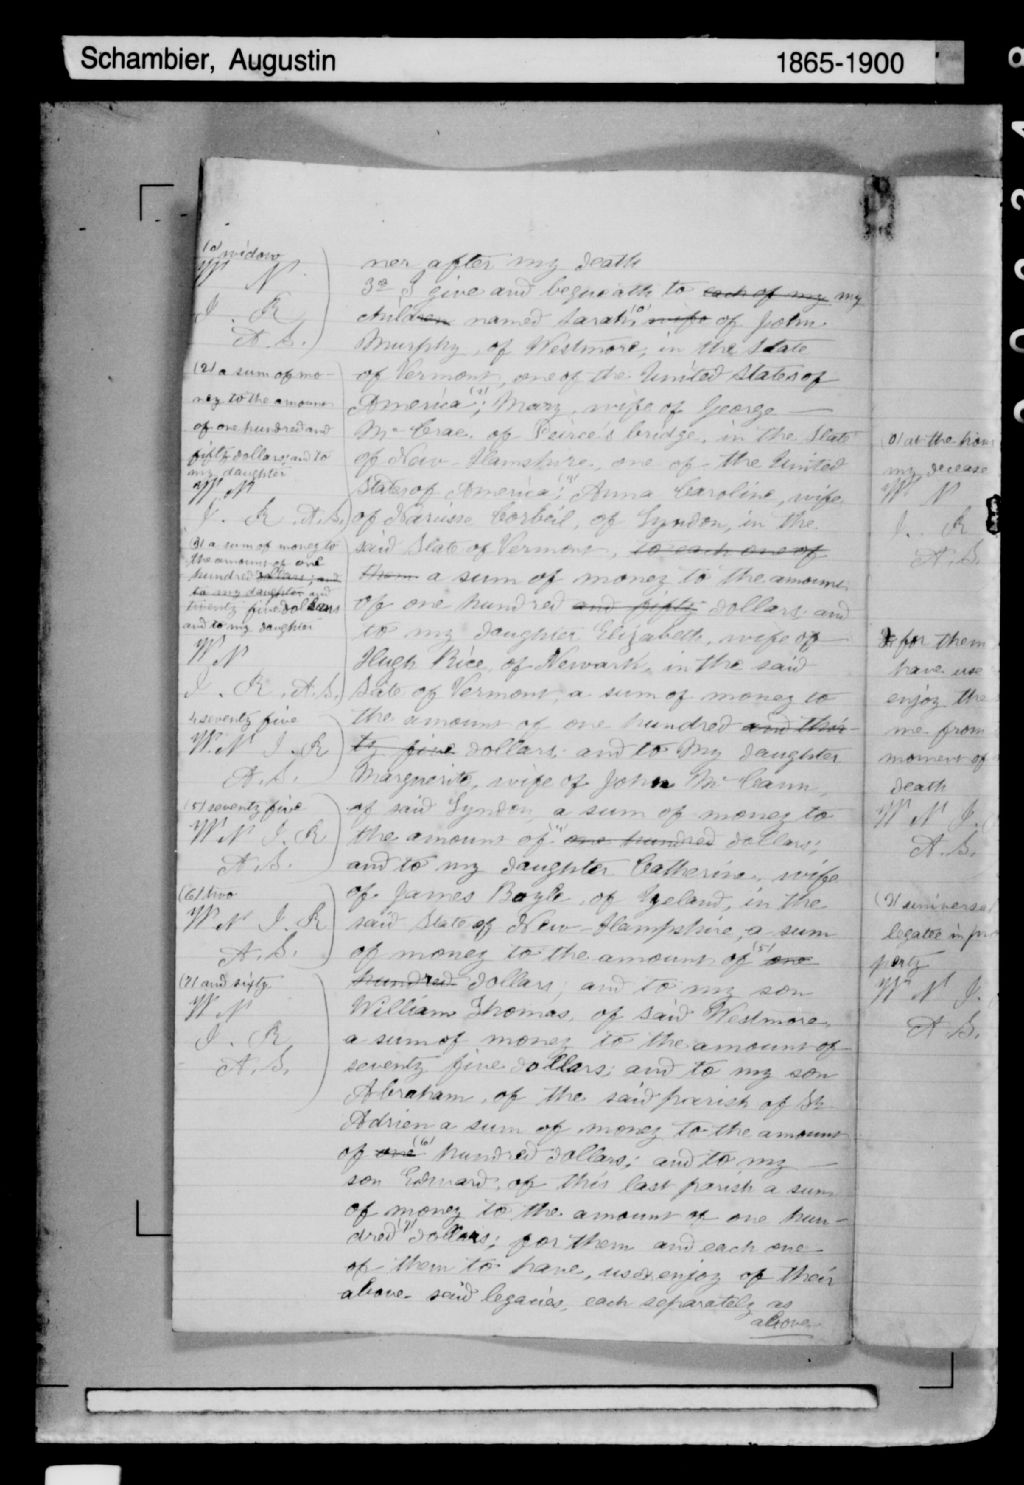 Schambier, Augustin 1865-1900
(1) widow
W N
J. R
A. S.
(2) a sum of mo-
ney to the amount
of one hundred and
fifty dollars; and to
my daughter
W. N
J. R. A.S.
(3) a sum of money to
the amount of one
hundred dollars; and
to my daughter and
twenty five dollars
and to my daughter
W N
J. R. A.S.
4 seventy five
W. N J. R
A. S.
(5) seventy five
W N J. R
A. S.
(6) two
W N J. R
A. S.
(7) and sixty
W N
J. R.
A. S.
ner after my death
3o I give and bequeath to each of my my
children named Sarah, (1) wife of John
Murphy, of Westmore, in the State
of Vermont, one of the United States of
America (2); Mary, wife of George
Mc Crae, of Peirce's bridge, in the State
of New-Hamshire, one of the United
States of America; (3) Anna Caroline, wife
of Narcisse Corbeil, of Lyndon, in the
said State of Vermont, to each one of
them a sum of money to the amount
of one hundred and fifty dollars; and
to my daughter Elizabeth, wife of
Hugh Rice, of Newark, in the said
State of Vermont, a sum of money to
the amount of one hundred and thir-
ty five dollars; and to my daughter
Marguerite, wife of John Mc Cann,
of said Lyndon, a sum of money to
the amount of (4) one hundred dollars;
and to my daughter Catherine, wife
of James Boyle, of in the
said State of New-Hampshire, a sum
of money to the amount of (5) one
hundred dollars; and to my son
William Thomas, of said Westmore,
a sum of money to the amount of
seventy five dollars; and to my son
Abraham, of the said parish of St
Adrien a sum of money to the amount
of one (6) hundred dollars; and to my
son Edward, of this last parish a sum
of money to the amount of one hun-
dred (7) dollars; for them and each one
of them to have, use enjoy of their
above-said legacies, each separately as
above
(1) at the hour
my decease
W N
J. R
A. S.
for them
have use
enjoy the
me from
moment of
death
W N J.
A. S.
(3) universal
legatee in pro
perty
W N J.
A S.